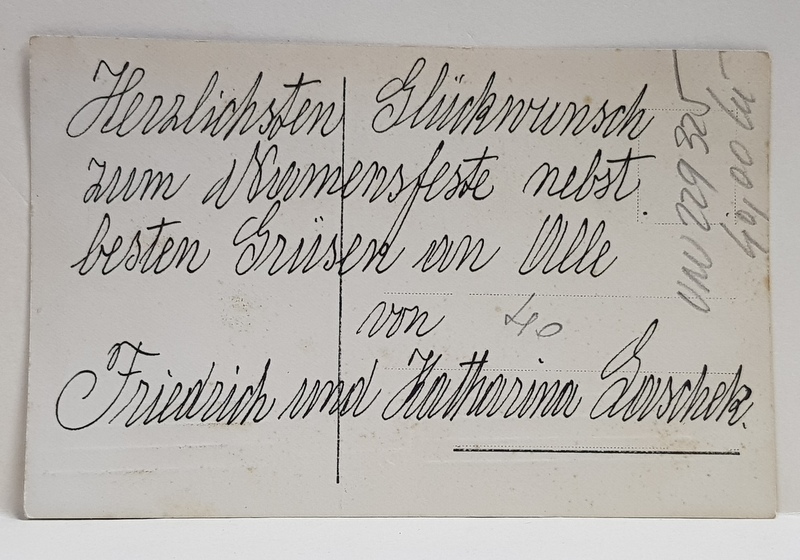 Herzlichsten Glückwunsch
zum Namensfeste nebst
besten Grüsen an Alle
von
Friedrich und Katharina
40